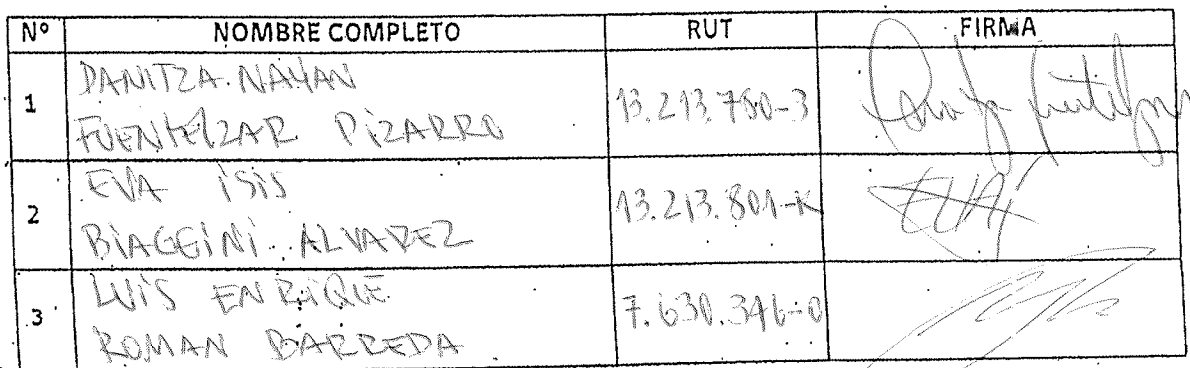 Nº NOMBRE COMPLETO RUT FIRMA
1 DANITZA NAYAN
FUENTELZAR PIZARRO 13.213.780-3
2 EVA ISIS
BIAGGINI ALVAREZ 13.213.801-K
3 LUIS ENRIQUE
ROMAN BARREDA 7.630.346-0